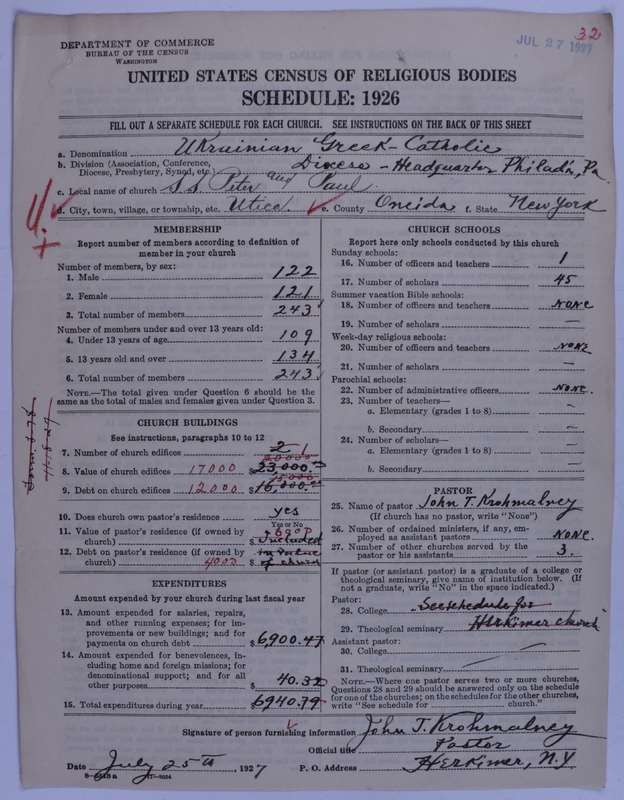 32
JUL 27 1927
DEPARTMENT OF COMMERCE
BUREAU OF THE CENSUS
WASHINGTON
UNITED STATES CENSUS OF RELIGIOUS BODIES
SCHEDULE: 1926
FILL OUT A SEPARATE SCHEDULE FOR EACH CHURCH. SEE INSTRUCTIONS ON THE BACK OF THIS SHEET
a. Denomination Ukrainian Greek-Catholic
b. Division (Association, Conference, Diocese, Presbytery, Synod, etc.) Diocese - Headquarter Philad'a, Pa.
c. Local name of church S.S. Peter and Paul
d. City, town, village, or township, etc. Utica. e. County Oneida f. State New York
MEMBERSHIP
Report number of members according to definition of
member in your church
Number of members, by sex:
1. Male 122
2. Female 121
3. Total number of members 243
Number of members under and over 13 years old:
4. Under 13 years of age 109
5. 13 years old and over 134
6. Total number of members 243
NOTE.—The total given under Question 6 should be the
same as the total of males and females given under Question 3.
CHURCH BUILDINGS
See instructions, paragraphs 10 to 12
7. Number of church edifices 2 1
8. Value of church edifices 17000 $ 23,000.
9. Debt on church edifices 12000 $ 16,000.
10. Does church own pastor's residence yes
Yes or No
11. Value of pastor's residence (if owned by
church) $ included
12. Debt on pastor's residence (if owned by
church) 4000 $ of church
EXPENDITURES
Amount expended by your church during last fiscal year
13. Amount expended for salaries, repairs,
and other running expenses; for im-
provements or new buildings; and for
payments on church debt $ 6900.47
14. Amount expended for benevolences, in-
cluding home and foreign missions; for
denominational support; and for all
other purposes $ 40.32
15. Total expenditures during year $ 6940.79
CHURCH SCHOOLS
Report here only schools conducted by this church
Sunday schools:
16. Number of officers and teachers 1
17. Number of scholars 45
Summer vacation Bible schools:
18. Number of officers and teachers NONE
19. Number of scholars —
Week-day religious schools:
20. Number of officers and teachers NONE
21. Number of scholars —
Parochial schools:
22. Number of administrative officers NONE.
23. Number of teachers—
a. Elementary (grades 1 to 8) —
b. Secondary —
24. Number of scholars—
a. Elementary (grades 1 to 8) —
b. Secondary —
PASTOR
25. Name of pastor John T. Krohmalney
(If church has no pastor, write "None")
26. Number of ordained ministers, if any, em-
ployed as assistant pastors NONE.
27. Number of other churches served by the
pastor or his assistants 3.
If pastor (or assistant pastor) is a graduate of a college or
theological seminary, give name of institution below. (If
not a graduate, write "No" in the space indicated.)
Pastor:
28. College See schedule for
29. Theological seminary Herkimer church
Assistant pastor:
30. College —
31. Theological seminary —
NOTE.—Where one pastor serves two or more churches,
Questions 28 and 29 should be answered only on the schedule
for one of the churches; on the schedules for the other churches,
write "See schedule for ______ church."
Signature of person furnishing information John T. Krohmalney
Official title Pastor
Date July 25th, 1927 P. O. Address Herkimer, N.Y